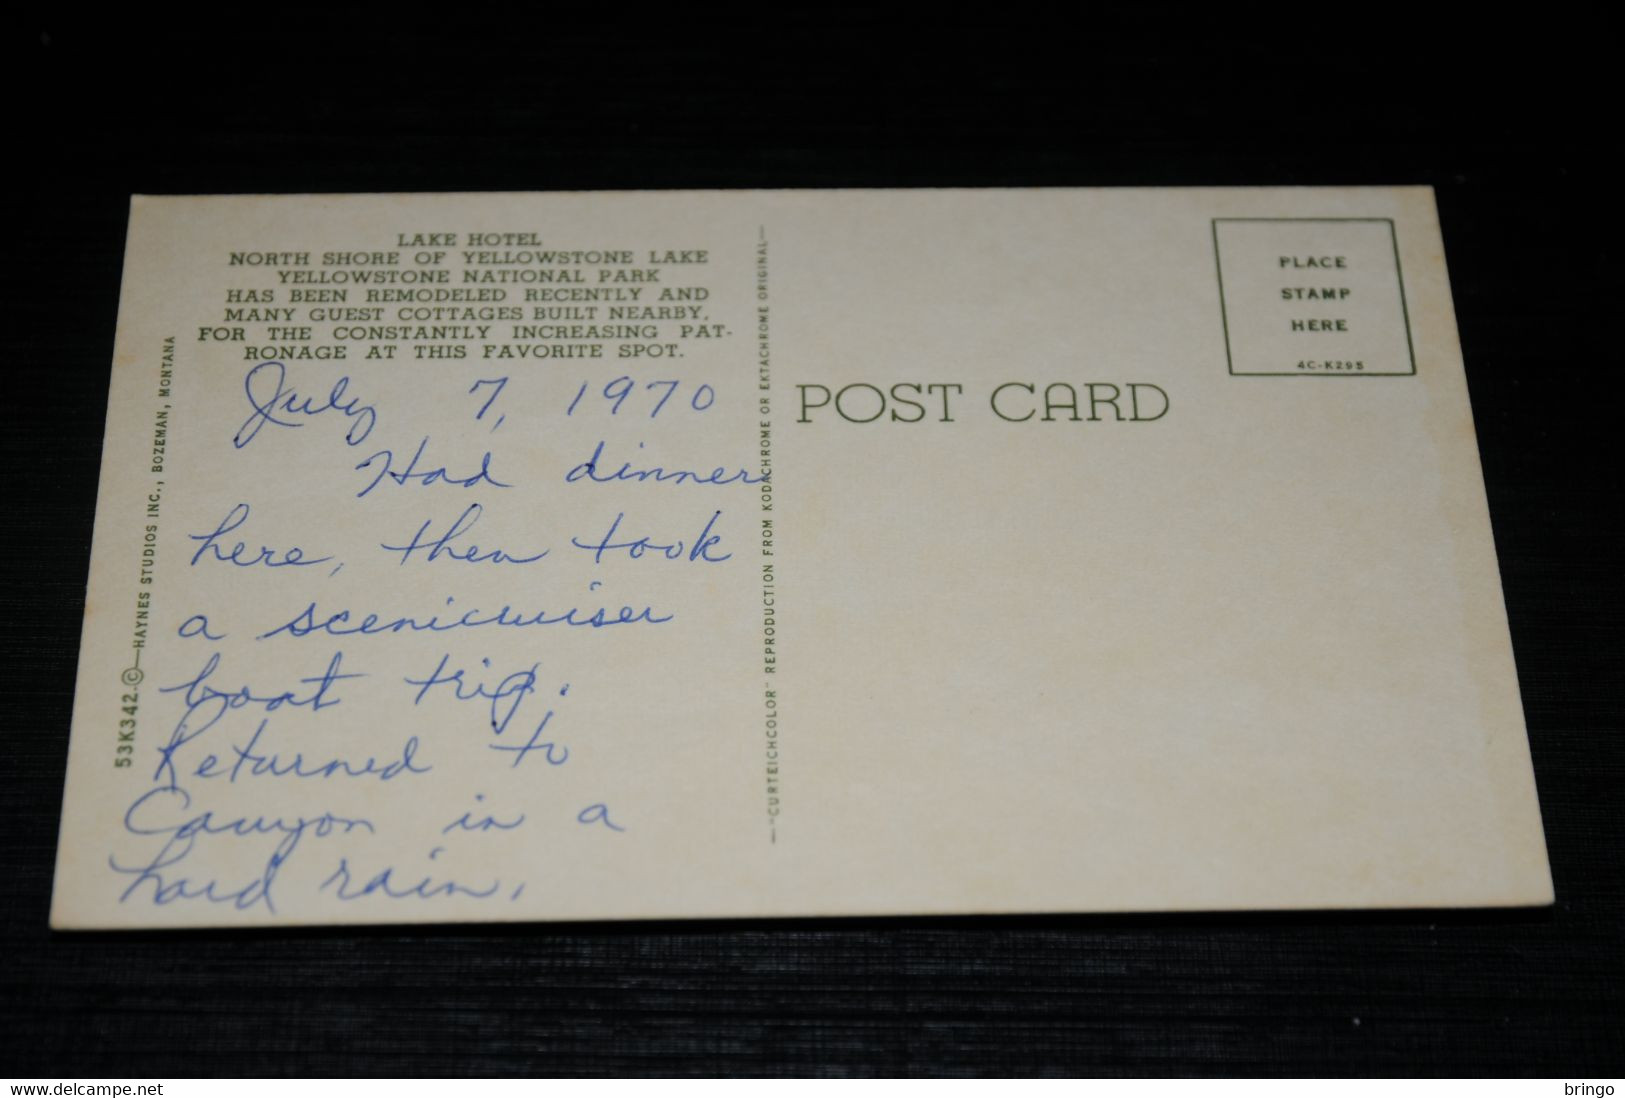 LAKE HOTEL
NORTH SHORE OF YELLOWSTONE LAKE
YELLOWSTONE NATIONAL PARK
HAS BEEN REMODELED RECENTLY AND
MANY GUEST COTTAGES BUILT NEARBY,
FOR THE CONSTANTLY INCREASING PAT-
RONAGE AT THIS FAVORITE SPOT.
July 7, 1970
Had dinner
here, then took
a scenicruiser
boat trip.
Returned to
Canyon in a
hard rain.
53K342-©—HAYNES STUDIOS INC., BOZEMAN, MONTANA
—"CURTEICHCOLOR" REPRODUCTION FROM KODACHROME OR EKTACHROME ORIGINAL—
POST CARD
PLACE
STAMP
HERE
4C-K295
delcampe.net
bringo